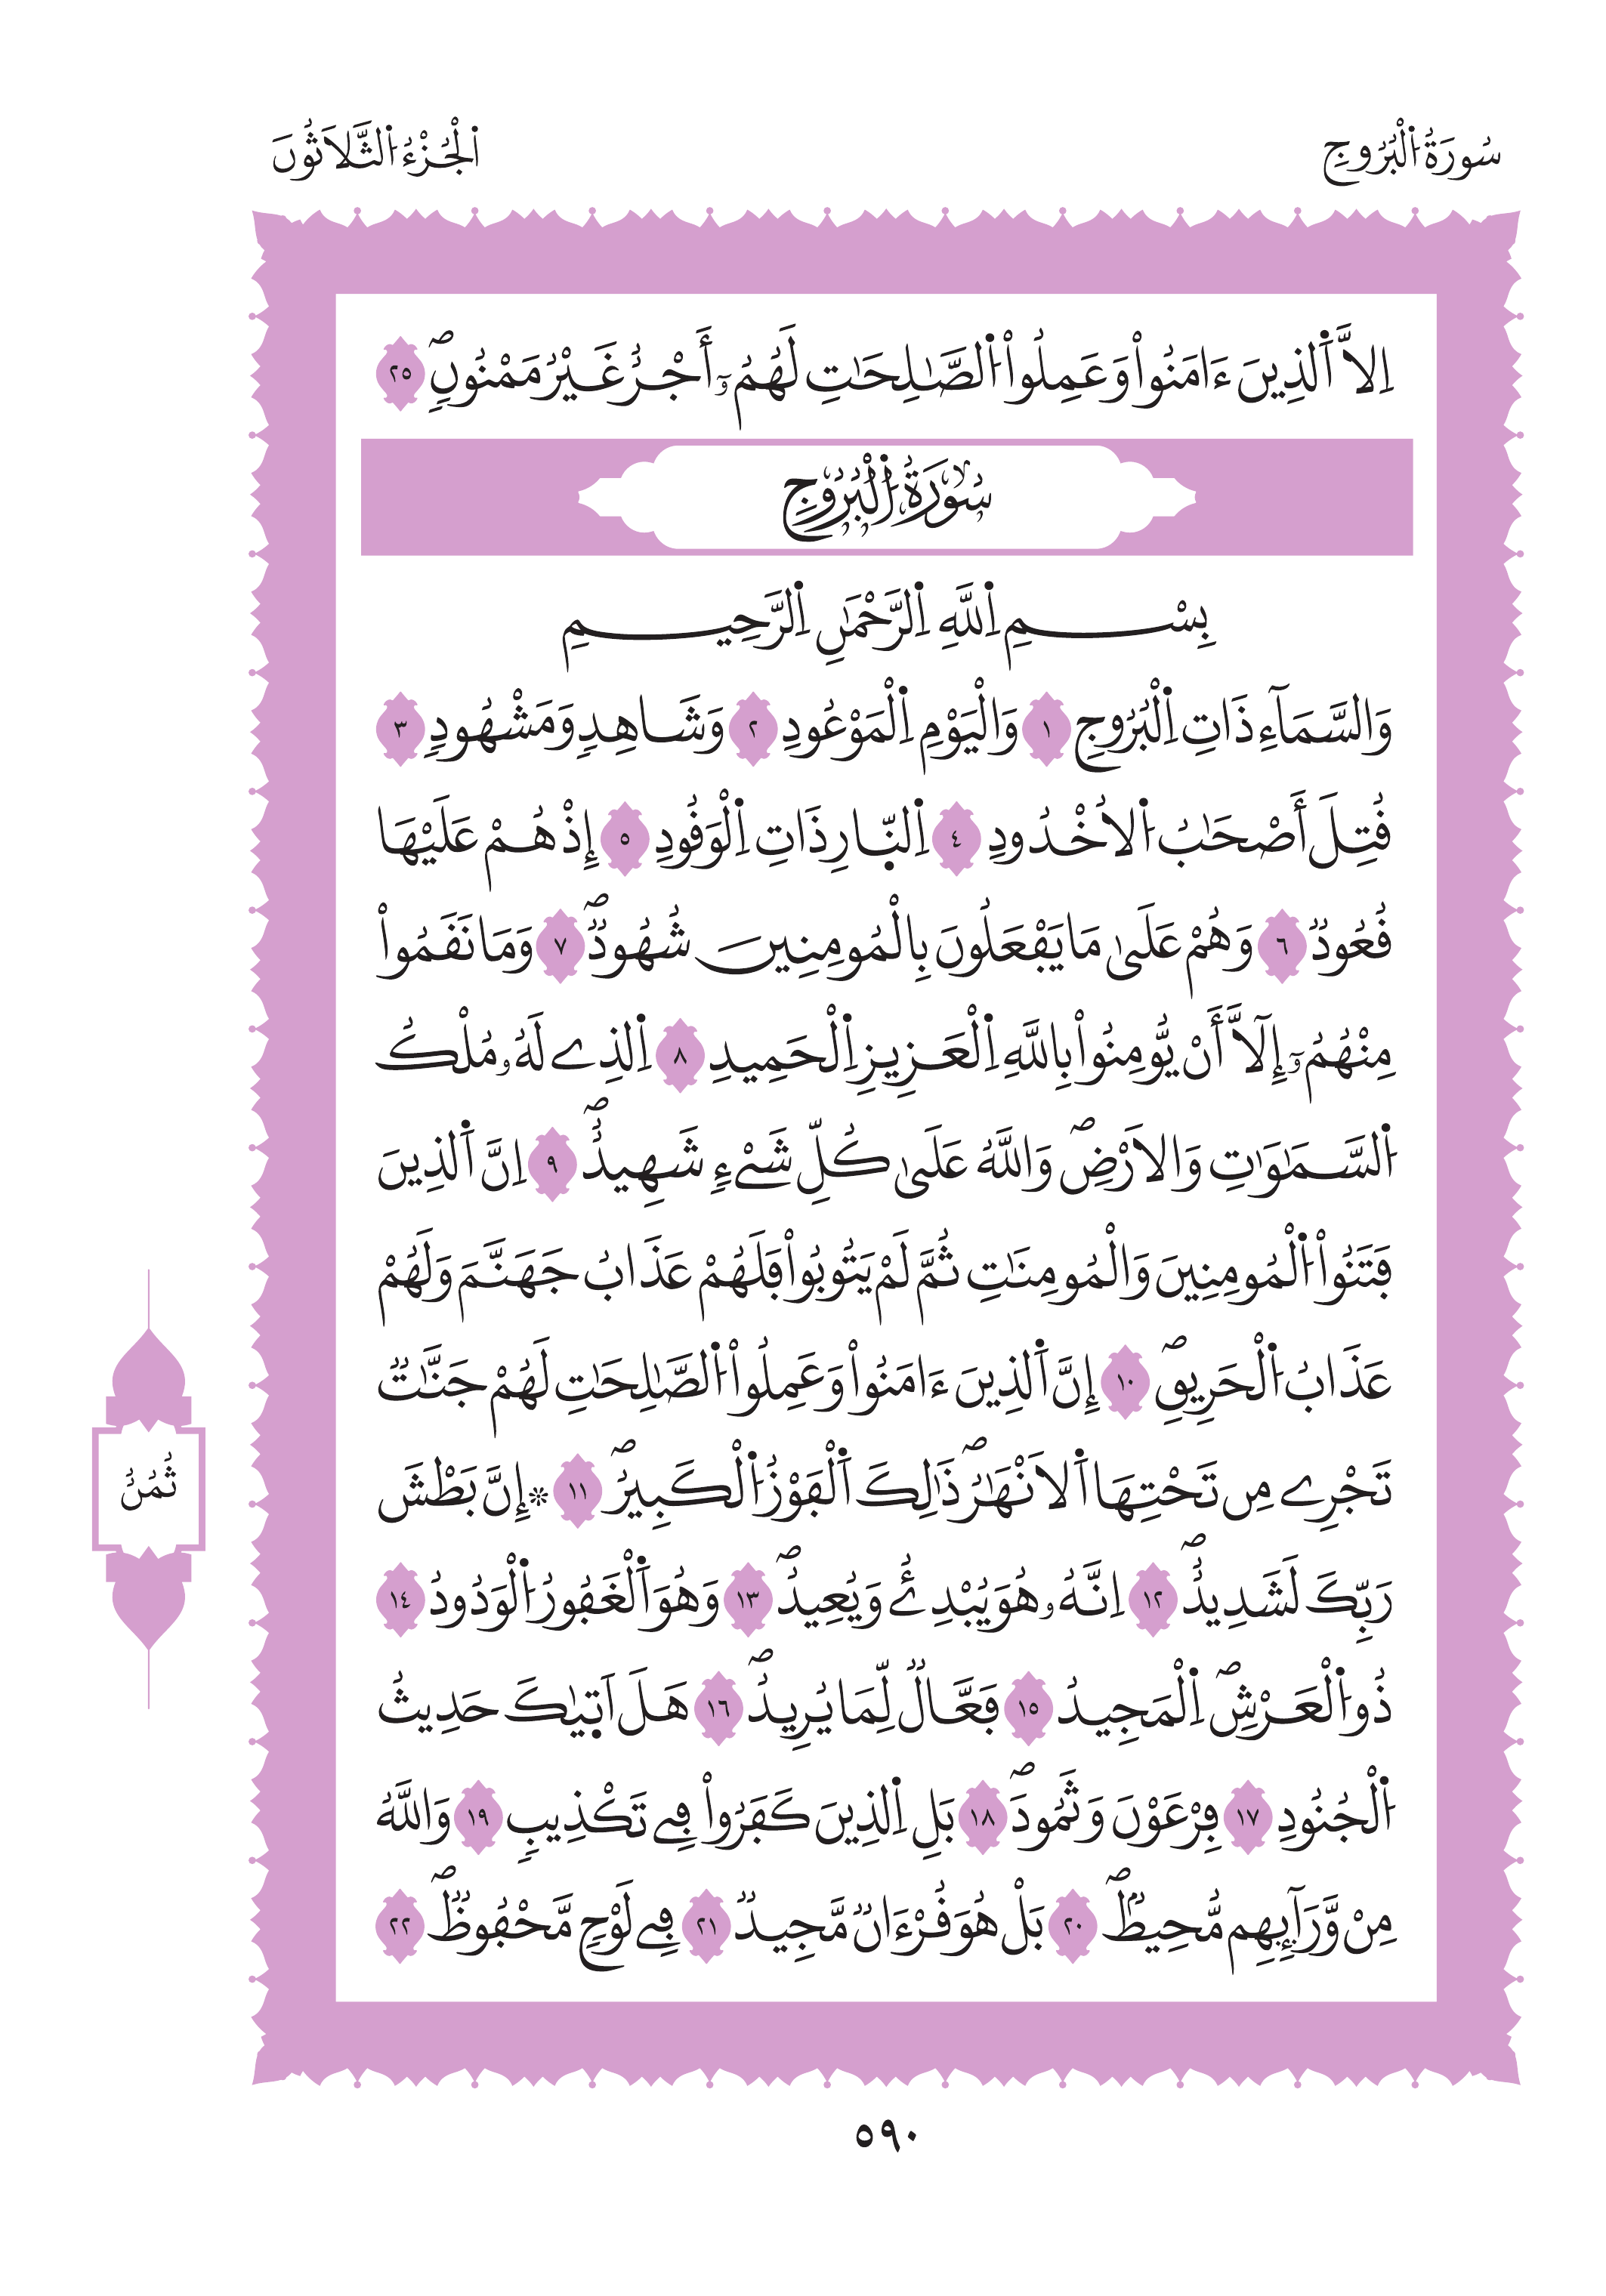 سُورَةُ اُ۬لْبُرُوجِ
اَلْجُزْءُ اُ۬لثَّلَاثُونَ
اِلَّا اَ۬لذِينَ ءَامَنُواْ وَعَمِلُواْ اُ۬لصَّٰلِحَٰتِ لَهُمُۥٓ أَجْرٌ غَيْرُ مَمْنُونٖۖ ٢٥
سُورَةُ اُ۬لْبُرُوجِ
بِسْمِ اِ۬للَّهِ اِ۬لرَّحْمَٰنِ اِ۬لرَّحِيمِ
وَالسَّمَآءِ ذَاتِ اِ۬لْبُرُوجِ ١ وَالْيَوْمِ اِ۬لْمَوْعُودِ ٢ وَشَاهِدٖ وَمَشْهُودٖ ٣
قُتِلَ أَصْحَٰبُ اُ۬لُاخْدُودِ ٤ اِ۬لنّ۪ارِ ذَاتِ اِ۬لْوَقُودِ ٥ إِذْ هُمْ عَلَيْهَا
قُعُودٞ ٦ وَهُمْ عَلَىٰ مَا يَفْعَلُونَ بِالْمُومِنِينَ شُهُودٞۖ ٧ وَمَا نَقَمُواْ
مِنْهُمُۥٓ إِلَّآ أَنْ يُّومِنُواْ بِاللَّهِ اِ۬لْعَزِيزِ اِ۬لْحَمِيدِ ٨ اِ۬لذِے لَهُۥ مُلْكُ
اُ۬لسَّمَٰوَٰتِ وَالَارْضِۖ وَاللَّهُ عَلَىٰ كُلِّ شَےْءٖ شَهِيدٌۖ ٩ اِنَّ اَ۬لذِينَ
فَتَنُواْ اُ۬لْمُومِنِينَ وَالْمُومِنَٰتِ ثُمَّ لَمْ يَتُوبُواْ فَلَهُمْ عَذَابُ جَهَنَّمَ وَلَهُمْ
عَذَابُ اُ۬لْحَرِيقِۖ ١٠ إِنَّ اَ۬لذِينَ ءَامَنُواْ وَعَمِلُواْ اُ۬لصَّٰلِحَٰتِ لَهُمْ جَنَّٰتٞ
تَجْرِے مِن تَحْتِهَا اَ۬لَانْهَٰرُۖ ذَٰلِكَ اَ۬لْفَوْزُ اُ۬لْكَبِيرُۖ ١١ ۞إِنَّ بَطْشَ
رَبِّكَ لَشَدِيدٌۖ ١٢ اِنَّهُۥ هُوَ يُبْدِئُ وَيُعِيدُۖ ١٣ وَهُوَ اَ۬لْغَفُورُ اُ۬لْوَدُودُ ١٤
ذُو اُ۬لْعَرْشِۖ اِ۬لْمَجِيدُ ١٥ فَعَّالٞ لِّمَا يُرِيدُۖ ١٦ هَلَ اَت۪يٰكَ حَدِيثُ
اُ۬لْجُنُودِ ١٧ فِرْعَوْنَ وَثَمُودَۖ ١٨ بَلِ اِ۬لذِينَ كَفَرُواْ فِے تَكْذِيبٖ ١٩ وَاللَّهُ
مِنْ وَّرَآئِهِم مُّحِيطُۢۖ ٢٠ بَلْ هُوَ قُرْءَانٞ مَّجِيدٞ ٢١ فِے لَوْحٖ مَّحْفُوظٞۖ ٢٢
ثُمُنُ
٥٩٠